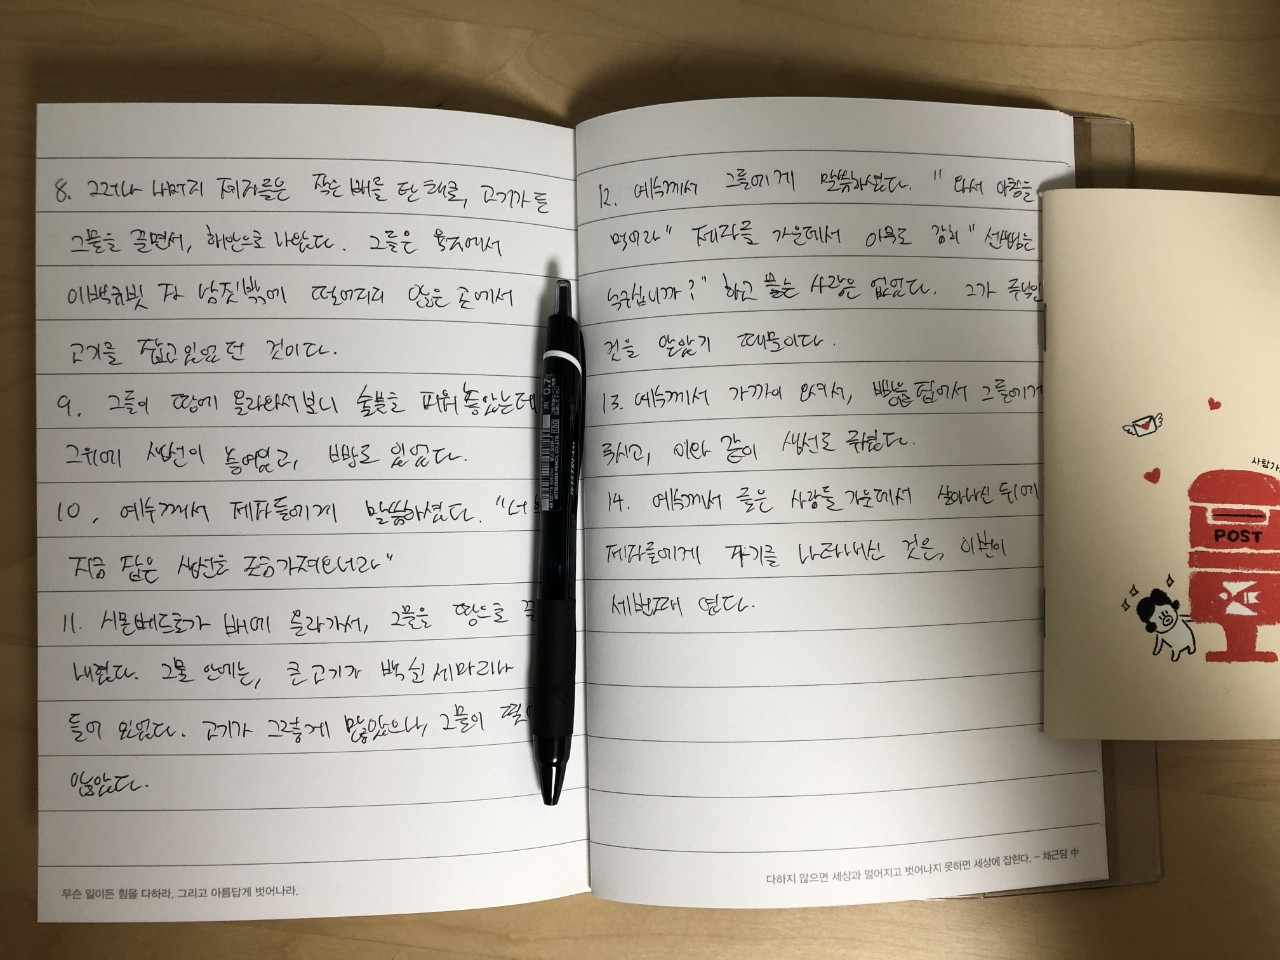 8. 그러나 나머지 제자들은 작은 배를 탄 채로, 고기가 든
그물을 끌면서, 해안으로 나왔다. 그들은 육지에서
이백규빗 자 남짓밖에 떨어지지 않은 곳에서
고기를 잡고 있었던 것이다.
9. 그들이 땅에 올라와서 보니 숯불을 피워 놓았는데
그위에 생선이 놓여있고, 빵도 있었다.
10. 예수께서 제자들에게 말씀하셨다. "너
지금 잡은 생선을 조금 가져오너라"
11. 시몬베드로가 배에 올라가서, 그물을 땅으로
내렸다. 그물 안에는, 큰 고기가 백 쉰 세마리나
들어 있었다. 고기가 그렇게 많았으나, 그물이
않았다.
무슨 일이든 힘을 다하라. 그리고 아름답게 벗어나라.
12. 예수께서 그들에게 말씀하셨다. "와서 아침을
먹어라" 제자들 가운데서 아무도 감히 "선생님은
누구십니까?" 하고 묻는 사람은 없었다. 그가 주님인
것을 알았기 때문이다.
13. 예수께서 가까이 와서, 빵을 집어서 그들에게
주시고, 이와 같이 생선도 주셨다.
14. 예수께서 죽은 사람들 가운데서 살아나신 뒤에
제자들에게 자기를 나타내신 것은, 이번이
세번째 였다.
다하지 않으면 세상과 멀어지고 벗어나지 못하면 세상에 잡힌다. - 채근담 中
0.7
POST